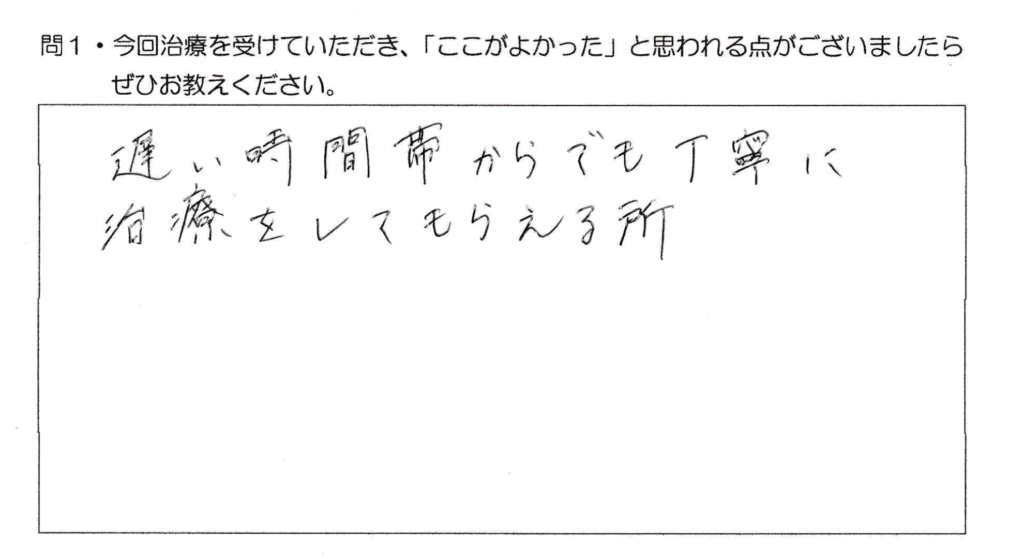 問1・今回治療を受けていただき、「ここがよかった」と思われる点がございましたら
ぜひお教えください。
遅い時間帯からでも丁寧に
治療をしてもらえる所